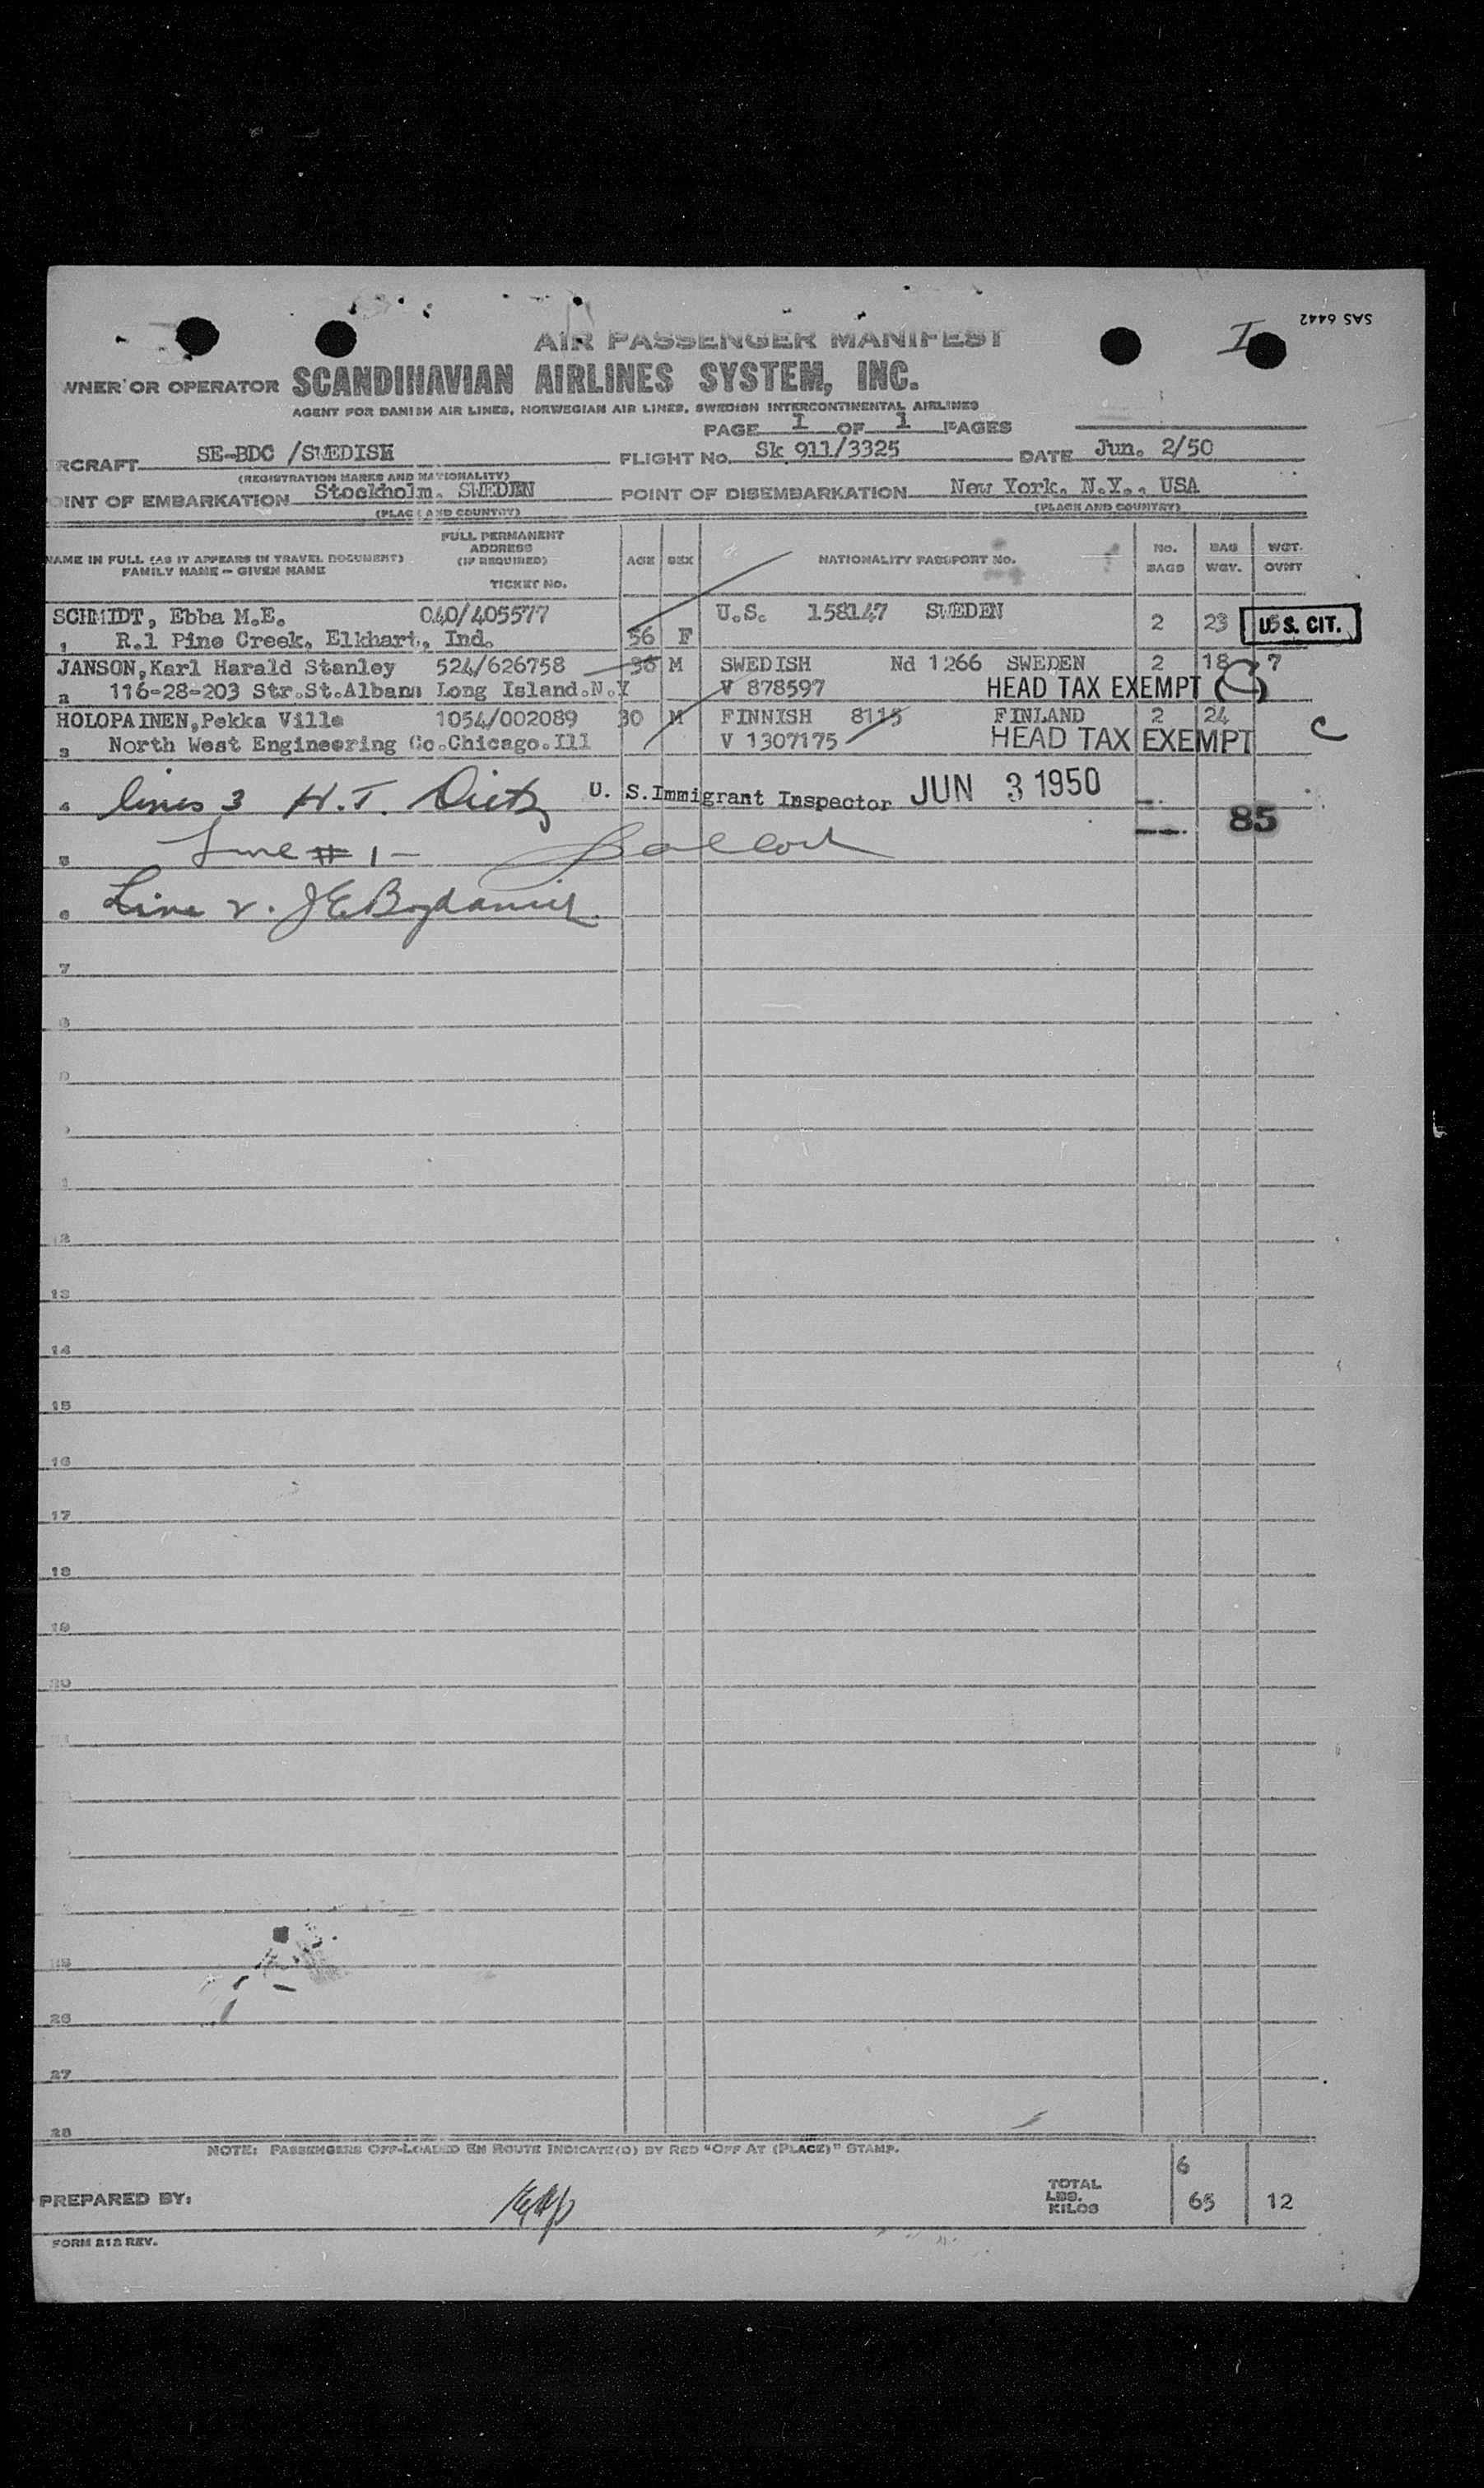 SAS 6442
I
AIR PASSENGER MANIFEST
WNER OR OPERATOR SCANDINAVIAN AIRLINES SYSTEM, INC.
AGENT FOR DANISH AIR LINES, NORWEGIAN AIR LINES, SWEDISH INTERCONTINENTAL AIRLINES
PAGE 1 OF 1 PAGES
RCRAFT SE-BDC /SWEDISH FLIGHT NO. Sk 911/3325 DATE Jun. 2/50
(REGISTRATION MARKS AND NATIONALITY)
OINT OF EMBARKATION Stockholm. SWEDEN POINT OF DISEMBARKATION New York. N.Y., USA
(PLACE AND COUNTRY) (PLACE AND COUNTRY)
NAME IN FULL (AS IT APPEARS IN TRAVEL DOCUMENT) FAMILY NAME — GIVEN NAME FULL PERMANENT ADDRESS (IF REQUIRED) TICKET NO. AGE SEX NATIONALITY PASSPORT NO. NO. BAGS BAG WGT. WGT. OVWT
SCHMIDT, Ebba M.E. 040/405577 U.S. 158147 SWEDEN
1 R.1 Pine Creek, Elkhart, Ind. 56 F 2 23 U.S. CIT.
JANSON,Karl Harald Stanley 524/626758 36 M SWEDISH Nd 1266 SWEDEN 2 18 7
2 116-28-203 Str.St.Albans Long Island.N.Y V 878597 HEAD TAX EXEMPT
HOLOPAINEN,Pekka Ville 1054/002089 30 M FINNISH 8115 FINLAND 2 24 C
3 North West Engineering Co.Chicago.Ill V 1307175 HEAD TAX EXEMPT
4 lines 3 H.T. Dietz U. S.Immigrant Inspector JUN 3 1950
85
5 Line # 1 -
6 Line 2. J E Bogdanich
7
8
9
1
12
13
14
15
16
17
18
19
20
25
26
27
28
NOTE: PASSENGERS OFF-LOADED EN ROUTE INDICATE(D) BY RED "OFF AT (PLACE)" STAMP.
6
PREPARED BY: TOTAL LBS. KILOS 65 12
FORM 212 REV.